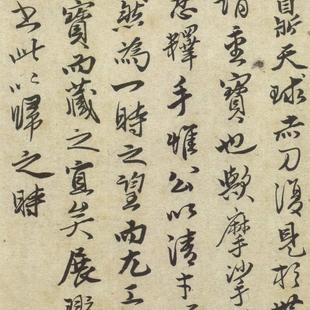 自所天球赤刀復見於世
謂重寶也嘆摩挲手
忍釋手惟公以清才
然為一時之望而尤工
寶而藏之宜矣展玩
書此以歸之時